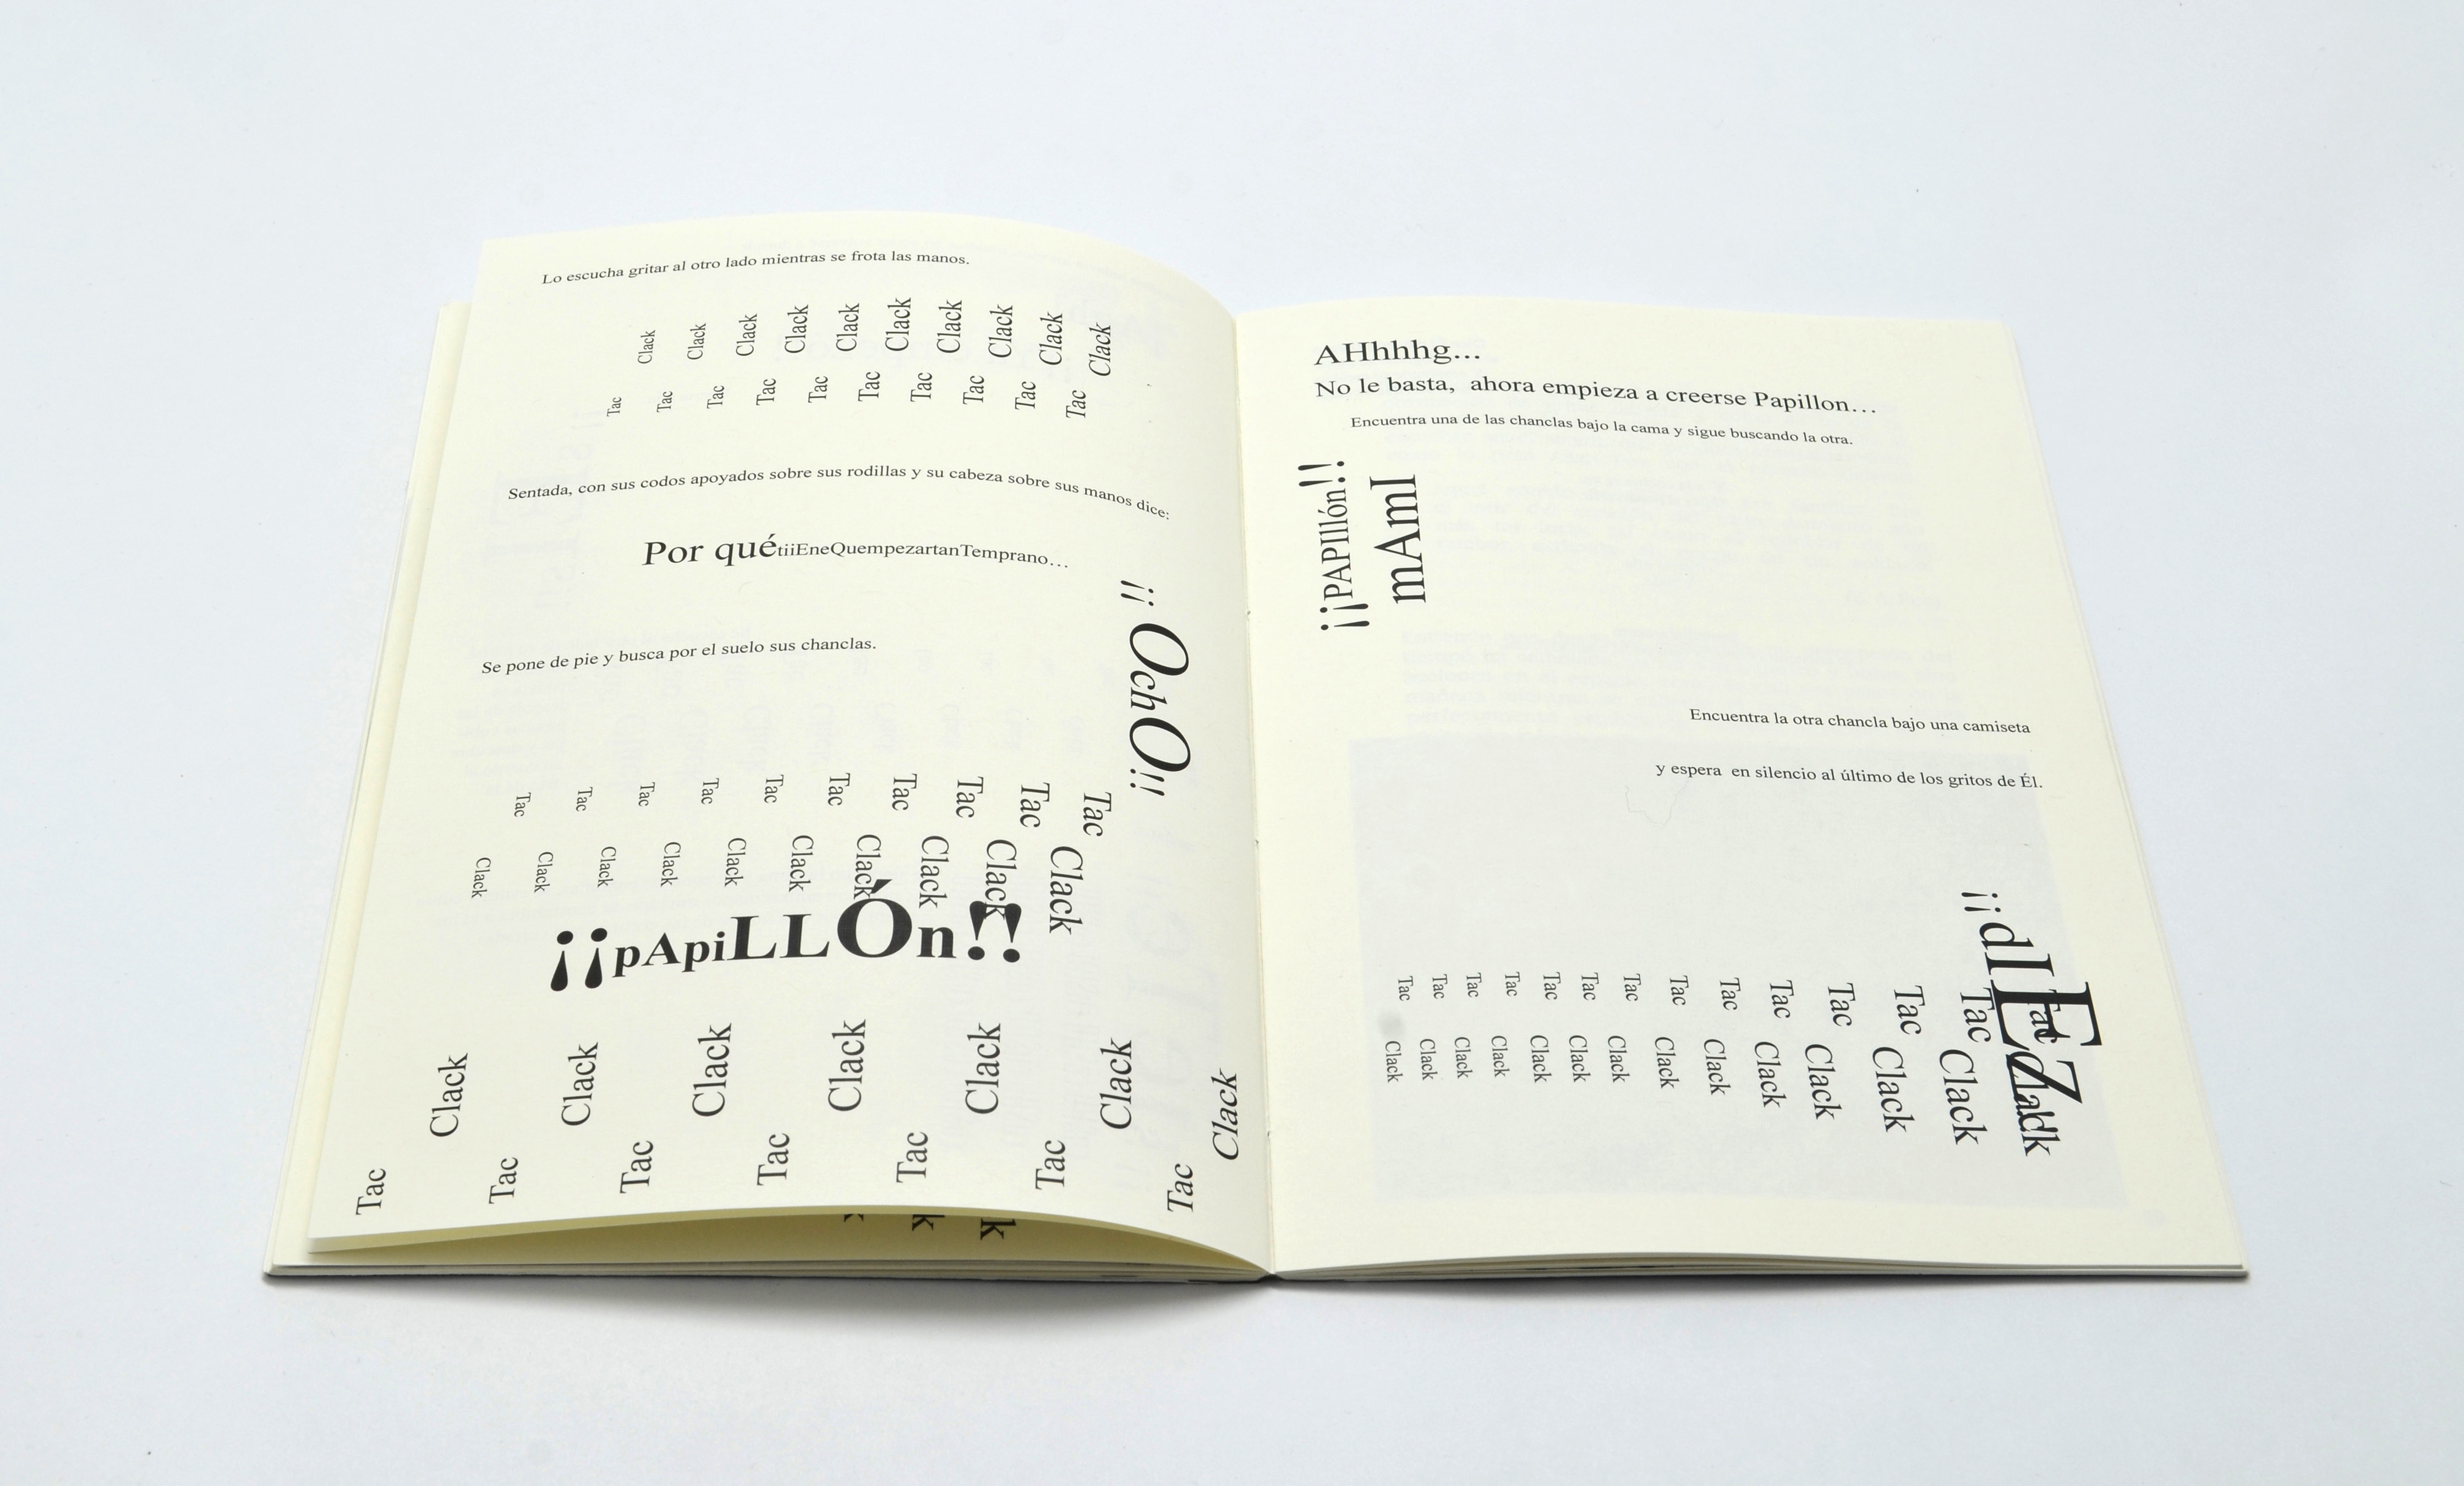 Lo escucha gritar al otro lado mientras se frota las manos.
Clack Clack Clack Clack Clack Clack Clack Clack Clack Clack
Tac Tac Tac Tac Tac Tac Tac Tac Tac Tac
Sentada, con sus codos apoyados sobre sus rodillas y su cabeza sobre sus manos dice:
Por quétiiEneQuempezartanTemprano…
¡¡OchO!!
Se pone de pie y busca por el suelo sus chanclas.
Tac Tac Tac Tac Tac Tac Tac Tac Tac Tac
Clack Clack Clack Clack Clack Clack Clack Clack Clack Clack
¡¡pApiLLÓn!!
Clack Clack Clack Clack Clack Clack Clack
Tac Tac Tac Tac Tac Tac Tac
k k
AHhhhg...
No le basta, ahora empieza a creerse Papillon…
Encuentra una de las chanclas bajo la cama y sigue buscando la otra.
¡¡PAPIllón!!
mAmI
Encuentra la otra chancla bajo una camiseta
y espera en silencio al último de los gritos de Él.
¡¡dIEZ
Tac Tac Tac Tac Tac Tac Tac Tac Tac Tac Tac Tac Tac Tac
Clack Clack Clack Clack Clack Clack Clack Clack Clack Clack Clack Clack Clack Clack